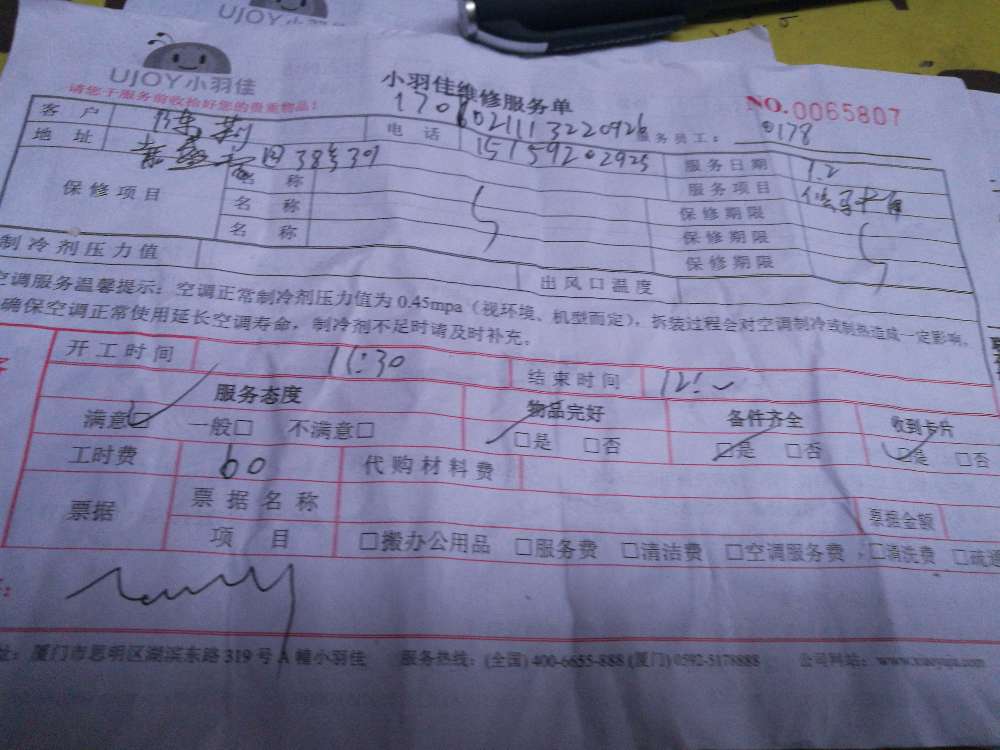 UJOY小羽佳
UJOY小羽佳
小羽佳维修服务单
NO.0065807
请您于服务前收拾好您的贵重物品!
1706021113220926
服务员工: 0178
客户 陈莉 电话 15159202925 服务日期 1.2
地址 38号301 服务项目
保修项目 名称 保修期限
名称 保修期限
名称 保修期限
制冷剂压力值 出风口温度
空调服务温馨提示:空调正常制冷剂压力值为 0.45mpa(视环境、机型而定),拆装过程会对空调制冷或制热造成一定影响,
确保空调正常使用延长空调寿命,制冷剂不足时请及时补充。
开工时间 11:30 结束时间 12:
服务态度 物品完好 备件齐全 收到卡片
满意□ 一般□ 不满意□ □是 □否 □是 □否 □是 □否
工时费 60 代购材料费
票据 票据名称 票据金额
项目 □搬办公用品 □服务费 □清洁费 □空调服务费 □清洗费 □疏通
址:厦门市思明区湖滨东路 319 号 A 幢小羽佳 服务热线:(全国) 400-6655-888 (厦门) 0592-5178888 公司网站:www.xiaoyujia.com